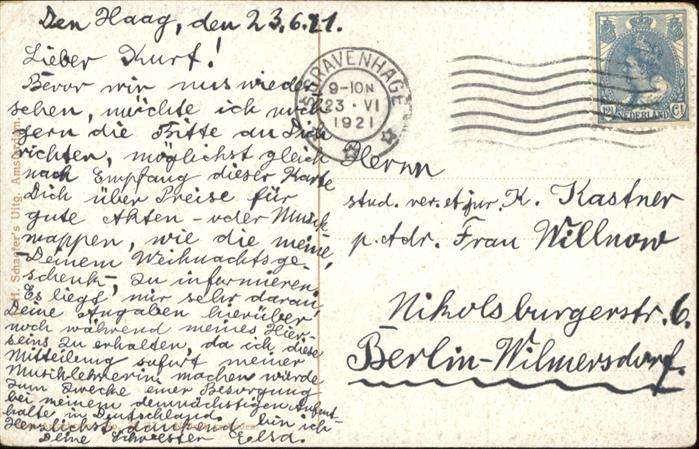 Den Haag, den 23.6.21.
Lieber Kurt!
Bevor wir uns wieder
sehen, möchte ich nicht
fern die Bitte an Dich
richten, möglichst gleich
nach Empfang dieser Karte
Dich über Preise für
gute Akten- oder Musik-
mappen, wie die meine,
Deinem Weihnachtsge-
schenk-, zu informieren.
Es liegt mir sehr daran
Deine Angaben hierüber
noch während meines Hier-
seins zu erhalten, da ich diese
Mitteilung sofort meiner
Musiklehrerin machen würde
zum Zwecke einer Besorgung
bei meinem demnächstigen Aufent-
halte in Deutschland.
Herzlichst dankend bin ich
Deine Schwester Elsa.
Schaefer's Uitg. Amsterdam.
'S GRAVENHAGE
9-10N
23·VI
1921
12½ Ct
NEDERLAND
Herrn
stud. rer. et jur. K. Kastner
p. Adr. Frau Willnow
Nikolsburgerstr. 6.
Berlin-Wilmersdorf.